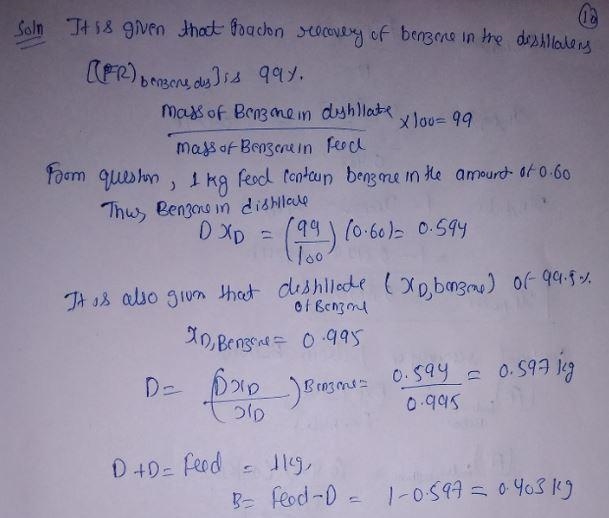 (12)
Soln It is given that fraction recovery of benzene in the destillaters
[(FR) benzene, dis] is 99%.
Mass of Benzene in dishllate / Mass of Benzene in Feed × 100 = 99
From question, 1 kg feed contain benzene in the amount of 0.60
Thus, Benzene in dishllate
D XD = (99/100) (0.60) = 0.594
It is also given that deshllade (XD, benzene) of 99.5%
of Benzene
XD, Benzene = 0.995
D = (DXD/XD) Benzene = 0.594/0.995 = 0.597 kg
D + D = Feed = 1kg,
B = feed - D = 1-0.597 = 0.403 kg